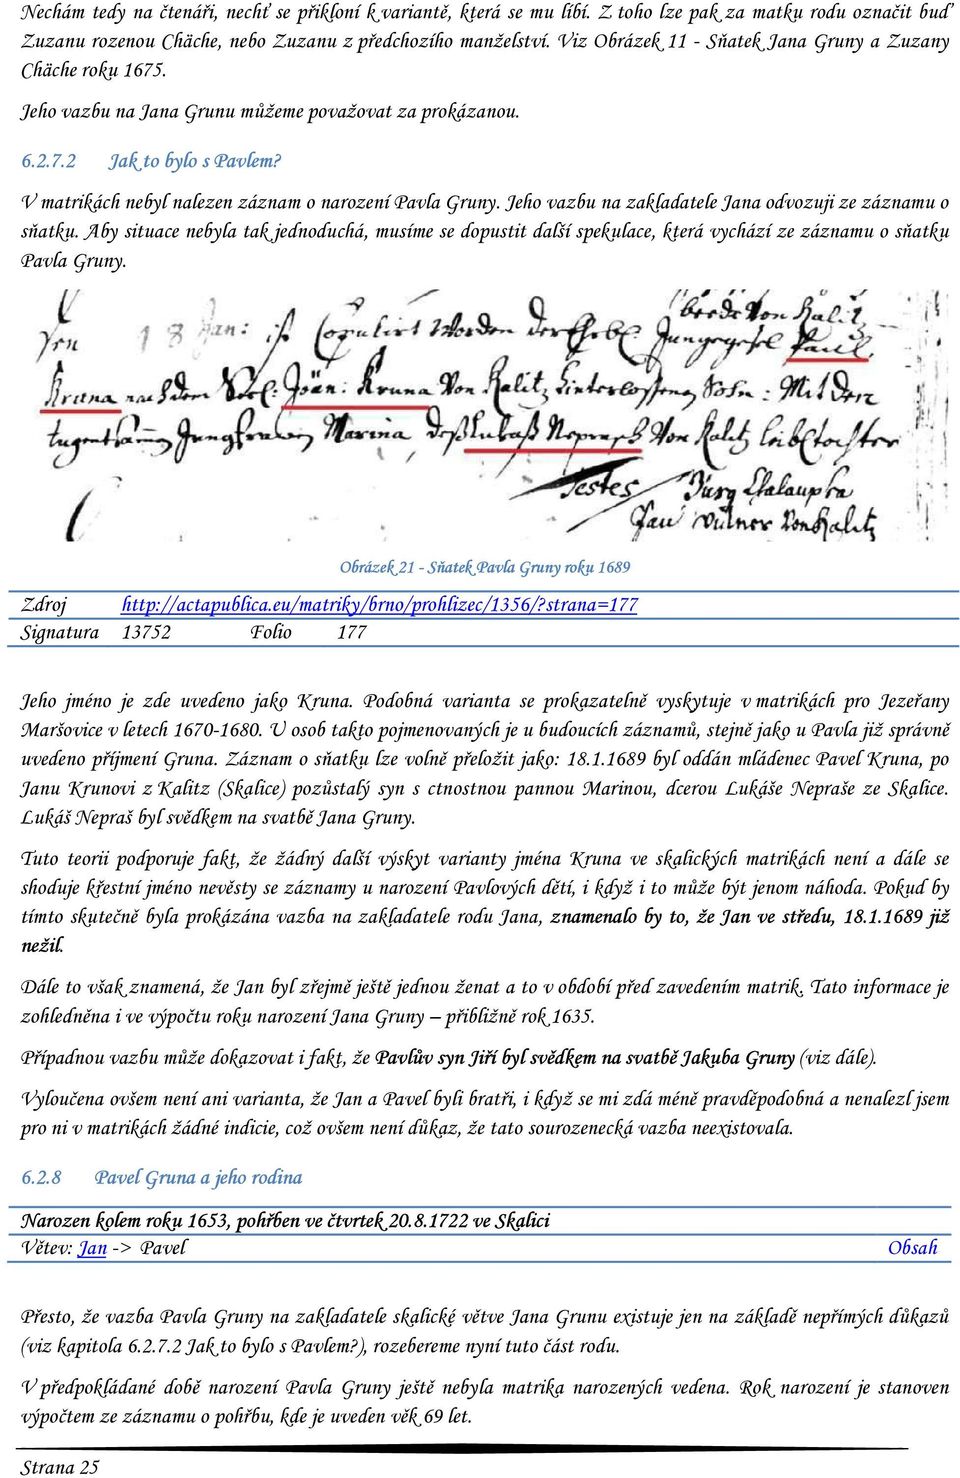 Nechám tedy na čtenáři, nechť se přikloní k variantě, která se mu líbí. Z toho lze pak za matku rodu označit buď
Zuzanu rozenou Chäche, nebo Zuzanu z předchozího manželství. Viz Obrázek 11 - Sňatek Jana Gruny a Zuzany
Chäche roku 1675.
Jeho vazbu na Jana Grunu můžeme považovat za prokázanou.
6.2.7.2 Jak to bylo s Pavlem?
V matrikách nebyl nalezen záznam o narození Pavla Gruny. Jeho vazbu na zakladatele Jana odvozuji ze záznamu o
sňatku. Aby situace nebyla tak jednoduchá, musíme se dopustit další spekulace, která vychází ze záznamu o sňatku
Pavla Gruny.
beede Von Kalitz
den 18 Jan: ist Copulirt Worden der Ehrbl. Jungegesel Paul
Kruna nach dem Seel: Joän: Kruna Von Kalitz hinterlossener Sohn: Mit der
tugentsamen Jungfrauen Marina deß Lukaß Neprasch Von Kalitz leibl tochter
Testes Jurg Chalaupka
Jan Von Kalitz
Obrázek 21 - Sňatek Pavla Gruny roku 1689
Zdroj http://actapublica.eu/matriky/brno/prohlizec/1356/?strana=177
Signatura 13752 Folio 177
Jeho jméno je zde uvedeno jako Kruna. Podobná varianta se prokazatelně vyskytuje v matrikách pro Jezeřany
Maršovice v letech 1670-1680. U osob takto pojmenovaných je u budoucích záznamů, stejně jako u Pavla již správně
uvedeno příjmení Gruna. Záznam o sňatku lze volně přeložit jako: 18.1.1689 byl oddán mládenec Pavel Kruna, po
Janu Krunovi z Kalitz (Skalice) pozůstalý syn s ctnostnou pannou Marinou, dcerou Lukáše Nepraše ze Skalice.
Lukáš Nepraš byl svědkem na svatbě Jana Gruny.
Tuto teorii podporuje fakt, že žádný další výskyt varianty jména Kruna ve skalických matrikách není a dále se
shoduje křestní jméno nevěsty se záznamy u narození Pavlových dětí, i když i to může být jenom náhoda. Pokud by
tímto skutečně byla prokázána vazba na zakladatele rodu Jana, znamenalo by to, že Jan ve středu, 18.1.1689 již
nežil.
Dále to však znamená, že Jan byl zřejmě ještě jednou ženat a to v období před zavedením matrik. Tato informace je
zohledněna i ve výpočtu roku narození Jana Gruny – přibližně rok 1635.
Případnou vazbu může dokazovat i fakt, že Pavlův syn Jiří byl svědkem na svatbě Jakuba Gruny (viz dále).
Vyloučena ovšem není ani varianta, že Jan a Pavel byli bratři, i když se mi zdá méně pravděpodobná a nenalezl jsem
pro ni v matrikách žádné indicie, což ovšem není důkaz, že tato sourozenecká vazba neexistovala.
6.2.8 Pavel Gruna a jeho rodina
Narozen kolem roku 1653, pohřben ve čtvrtek 20.8.1722 ve Skalici
Větev: Jan -> Pavel Obsah
Přesto, že vazba Pavla Gruny na zakladatele skalické větve Jana Grunu existuje jen na základě nepřímých důkazů
(viz kapitola 6.2.7.2 Jak to bylo s Pavlem?), rozebereme nyní tuto část rodu.
V předpokládané době narození Pavla Gruny ještě nebyla matrika narozených vedena. Rok narození je stanoven
výpočtem ze záznamu o pohřbu, kde je uveden věk 69 let.
Strana 25